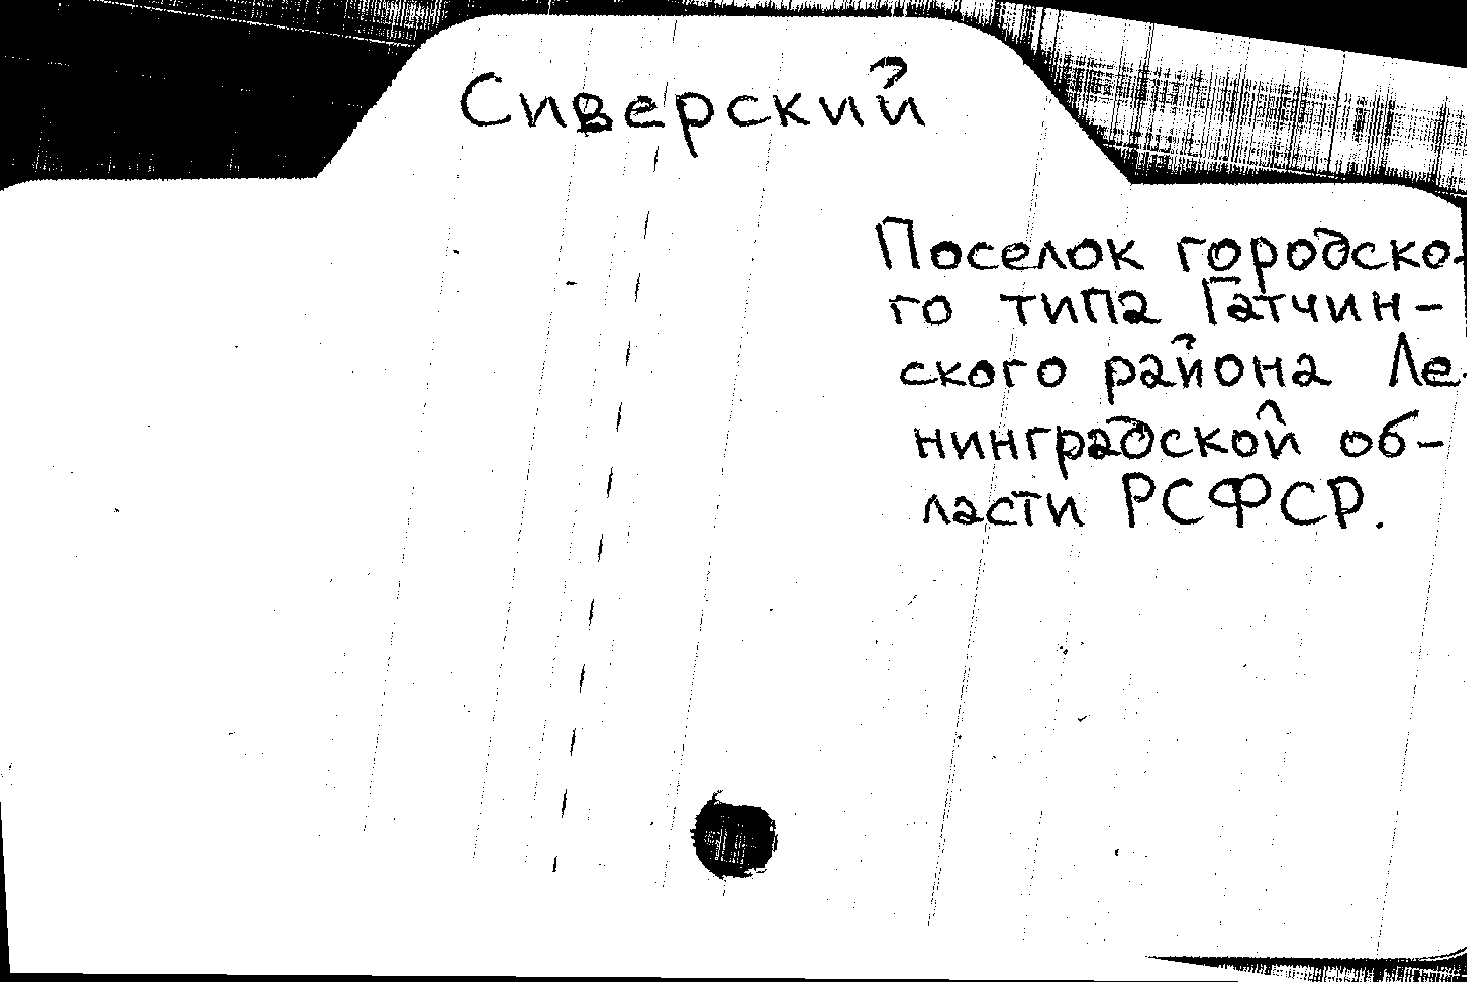 Сиверский
Поселок городско-
го типа Гатчин-
ского района Ле-
нинградской об-
ласти РСФСР.